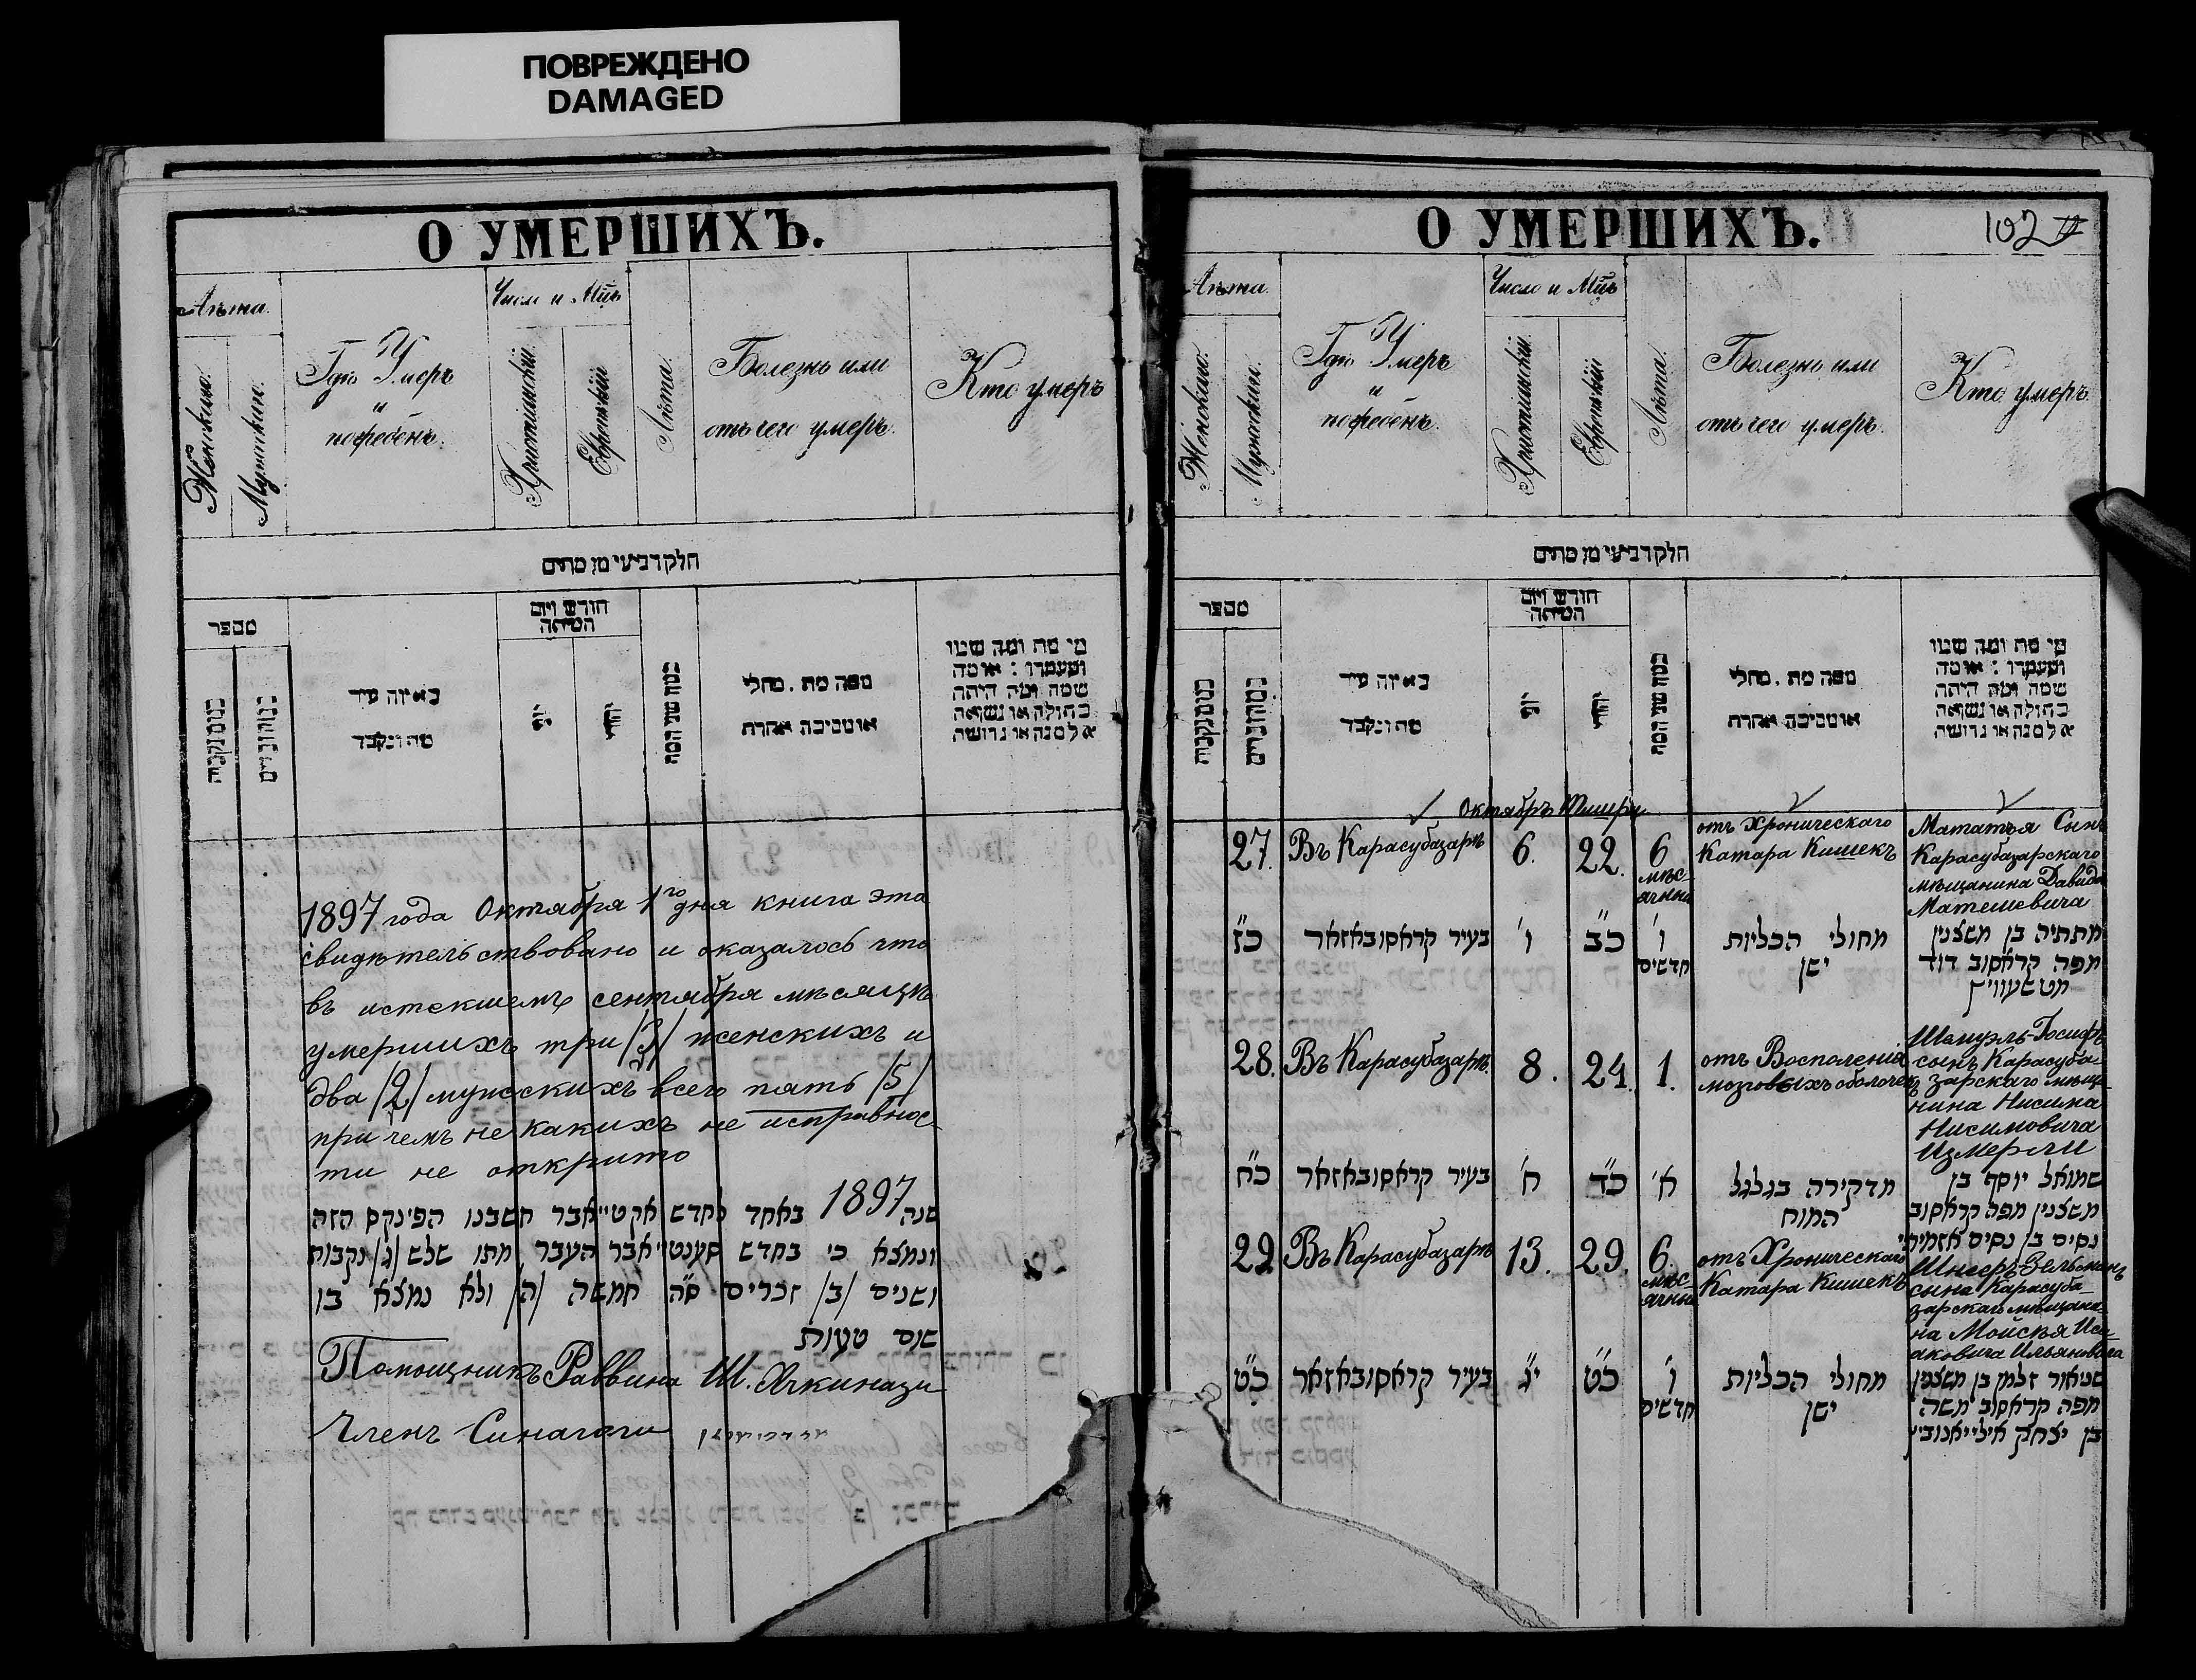 ПОВРЕЖДЕНО
DAMAGED
О УМЕРШИХЪ.
Лѣта.
Женскихъ.
Мужскихъ.
Гдѣ Умеръ
и
погребенъ.
Число и Мцъ
Христіанскій.
Еврейскій
Лѣта.
Болезнь или
отъ чего умеръ.
Кто умеръ
חלק רביעי מן מתים
מספר
באיזה עיר
מת ונקבר
חודש ויום
המיתה
יוני
יהודי
כמה שני המת
ממה מת . מחלי
או מסיבה אחרת
מי מת ומה שמו
ומעמדו : או מה
שמה ומה היתה
בתולה או נשואה
אלמנה או גרושה
1897 года Октября 1го дня книга эта
свидѣтельствовано и оказалось что
въ истекшемъ сентября мѣсяцѣ
умершихъ три /3/ женскихъ и
два /2/ мужскихъ всего пять /5/
при чемъ не какихъ не исправнос-
ти не открито
שנה 1897 באחד לחדש אקטייאבר חשבנו הפינקס הזה
ונמצא כי בחדש סענטיאבר העבר מתו שלש /ג/ נקבות
ושנים /ב/ זכרים ס״ה חמשה /ה/ ולא נמצא בו
שום טעות
Помощникъ Раввина Ш. Ачкинази
Членъ Синагоги
О УМЕРШИХЪ.
102
Лѣта.
Женскихъ.
Мужскихъ.
Гдѣ Умеръ
и
погребенъ.
Число и Мцъ
Христіанскій.
Еврейскій
Лѣта.
Болезнь или
отъ чего умеръ.
Кто умеръ
חלק רביעי מן מתים
מספר
באיזה עיר
מת ונקבר
חודש ויום
המיתה
יוני
יהודי
כמה שני המת
ממה מת . מחלי
או מסיבה אחרת
מי מת ומה שמו
ומעמדו : או מה
שמה ומה היתה
בתולה או נשואה
אלמנה או גרושה
Октябръ Тишри
27. Въ Карасубазарѣ 6. 22. 6 мѣс-
ячный
отъ Хроническаго
Катара Кишекъ
Мататья Сынъ
Карасубазарскаго
мѣщанина Давида
Матешевича
כ״ז בעיר קראסובאזאר ו' כ״ב ו'
חדשים
מחולי הכליות
ישן
מתתיה בן משצנין
מפה קראסוב דוד
מטשעוויץ
28. Въ Карасубазарѣ. 8. 24. 1.
отъ Восполенія
мозговыхъ оболочекъ
Шамуэль-Іосифъ
сынъ Карасуба-
зарскаго мѣща-
нина Нисима
Нисимовича
Измерли
כ״ח בעיר קראסובאזאר ח' כ״ד א'
מדקירה בגלגל
המוח
שמואל יוסף בן
משצנין מפה קראסוב
נסים בן נסים אזמירלי
29. Въ Карасубазарѣ 13. 29. 6. мѣс-
ячный
отъ Хроническаго
Катара Кишекъ
Шнееръ-Зельманъ
сына Карасуба-
зарскаго мѣщани-
на Мойсѣя Иса-
аковича Ильяновича
כ״ט בעיר קראסובאזאר י״ג כ״ט ו'
חדשים
מחולי הכליות
ישן
שניאור זלמן בן משצנין
מפה קראסוב משה
בן יצחק אילייאנוביץ